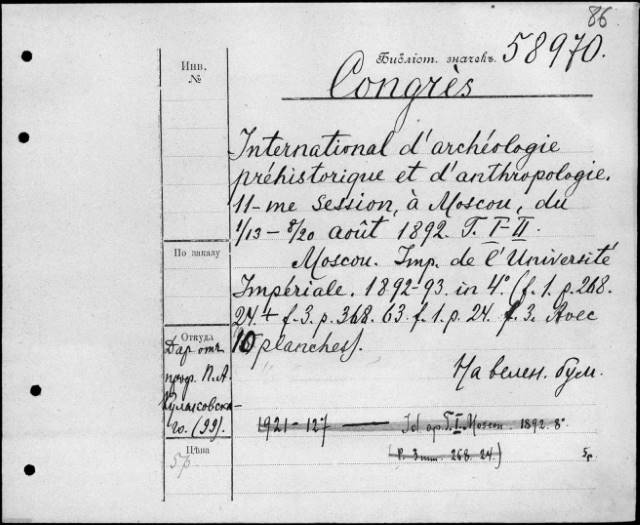 86
Инв.
№
Библіот. значекъ. 58970.
Congrès
International d'archéologie
préhistorique et d'anthropologie.
11-me session, à Moscou, du
1/13 – 8/20 août 1892. T. I-II.
По заказу
Moscou. Imp. de l'Université
Impériale. 1892-93. in 4°. (f. 1. p. 268.
24. + f. 3. p. 368. 63. f. 1. p. 24. f. 3. Avec
10 planches).
Откуда
Даръ отъ
проф. П.А.
Кулаковска-
го. (99).
На велен. бум.
Цѣна
5р
1921-127 — Id op. T. I. Moscou. 1892. 8°
268. 24.) 5р.